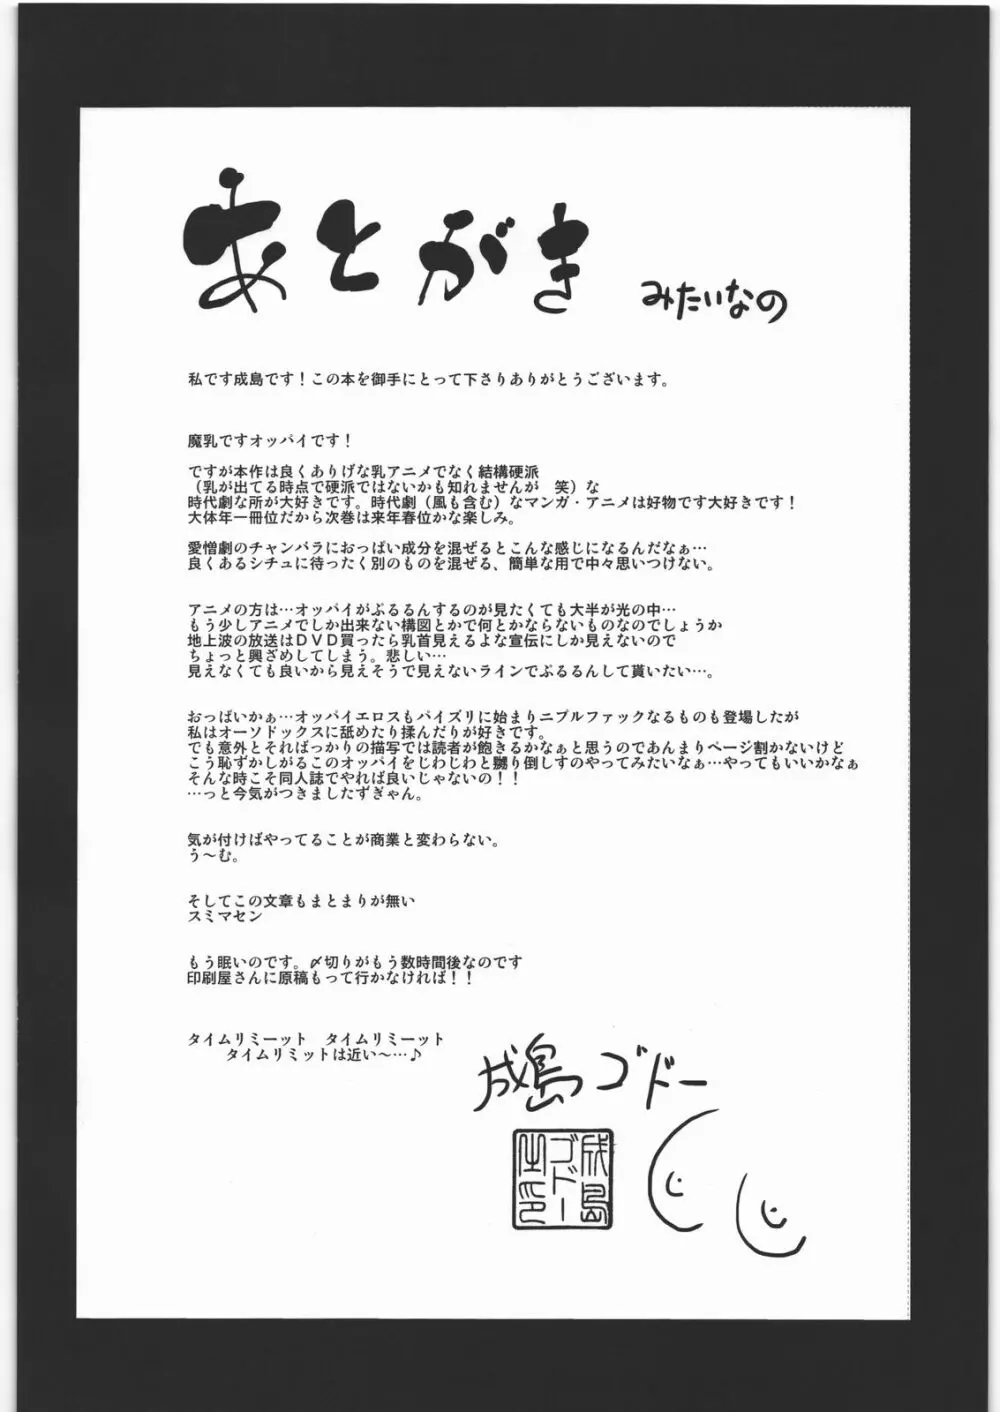 あとがき みたいなの
私です成島です！この本を御手にとって下さりありがとうございます。
魔乳ですオッパイです！
ですが本作は良くありげな乳アニメでなく結構硬派
（乳が出てる時点で硬派ではないかも知れませんが　笑）な
時代劇な所が大好きです。時代劇（風も含む）なマンガ・アニメは好物です大好きです！
大体年一冊位だから次巻は来年春位かな楽しみ。
愛憎劇のチャンバラにおっぱい成分を混ぜるとこんな感じになるんだなぁ…
良くあるシチュに待ったく別のものを混ぜる、簡単な用で中々思いつけない。
アニメの方は…オッパイがぶるるんするのが見たくても大半が光の中…
もう少しアニメでしか出来ない構図とかで何とかならないものなのでしょうか
地上波の放送はＤＶＤ買ったら乳首見えるよな宣伝にしか見えないので
ちょっと興ざめしてしまう。悲しい…
見えなくても良いから見えそうで見えないラインでぶるるんして貰いたい…。
おっぱいかぁ…オッパイエロスもパイズリに始まりニプルファックなるものも登場したが
私はオーソドックスに舐めたり揉んだりが好きです。
でも意外とそればっかりの描写では読者が飽きるかなぁと思うのであんまりページ割かないけど
こう恥ずかしがるこのオッパイをじわじわと嬲り倒しすのやってみたいなぁ…やってもいいかなぁ
そんな時こそ同人誌でやれば良いじゃないの！！
…っと今気がつきましたずぎゃん。
気が付けばやってることが商業と変わらない。
う～む。
そしてこの文章もまとまりが無い
スミマセン
もう眠いのです。〆切りがもう数時間後なのです
印刷屋さんに原稿もって行かなければ！！
タイムリミーット　タイムリミーット
タイムリミットは近い～…♪
成島ゴドー
成島
ゴドー
之印